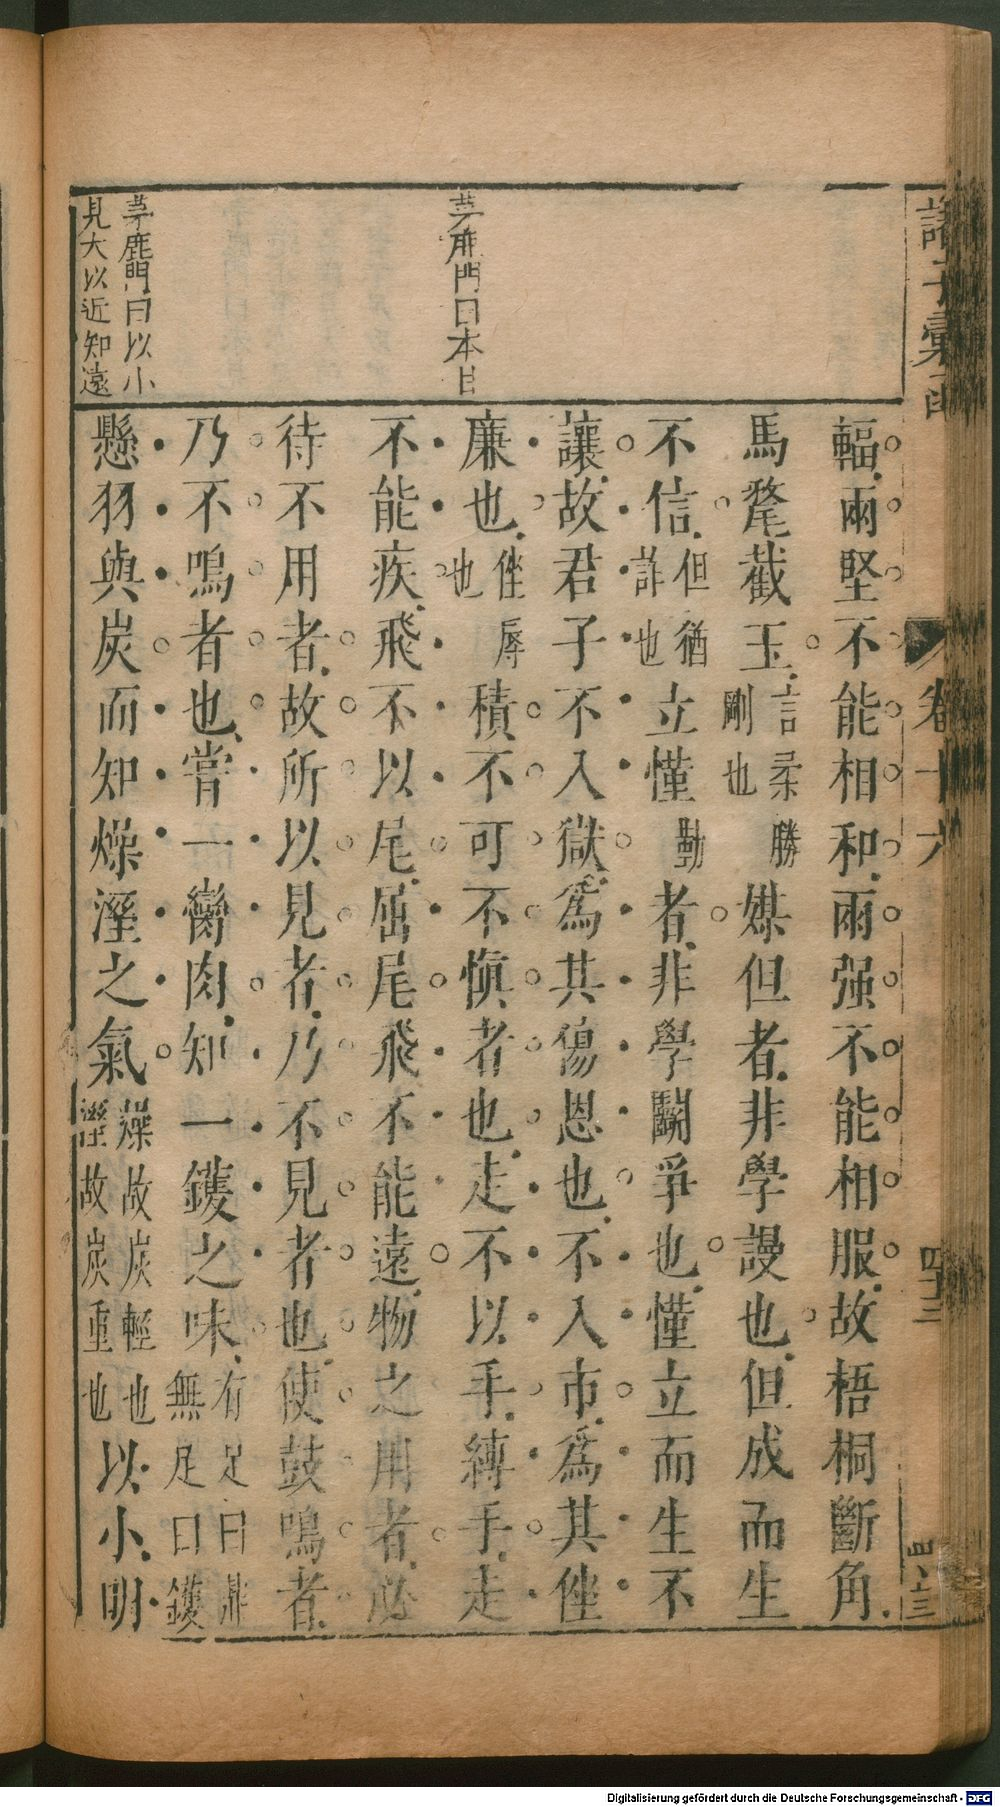 諸子彙函
卷十六
四十三
輻兩堅不能相和兩强不能相服故梧桐斷角
馬氂截玉言柔勝剛也媒但者非學謾也但成而生
不信但猶詐也立慬勤者非學鬭爭也慬立而生不
讓故君子不入獄爲其傷恩也不入市爲其侳
廉也侳辱也積不可不愼者也走不以手縛手走
不能疾飛不以尾屈尾飛不能遠物之用者必
待不用者故所以見者乃不見者也使鼓鳴者
乃不鳴者也嘗一臠肉知一鑊之味有足曰鼎無足曰鑊
懸羽與炭而知燥溼之氣燥故炭輕也溼故炭重也以小明
茅鹿門曰本日
茅鹿門曰以小
見大以近知遠
Digitalisierung gefördert durch die Deutsche Forschungsgemeinschaft - DFG